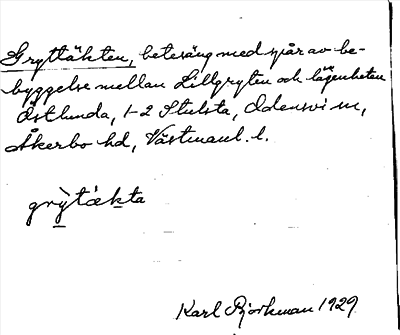 Gryttäkten, betesäng med spår av be-
byggelse mellan Lillgryten och lägenheten
Östlunda, 1-2 Stulsta, Odensvi sn,
Åkerbo hd, Västmanl. l.
grỳtǽkta
Karl Bjorkman 1929